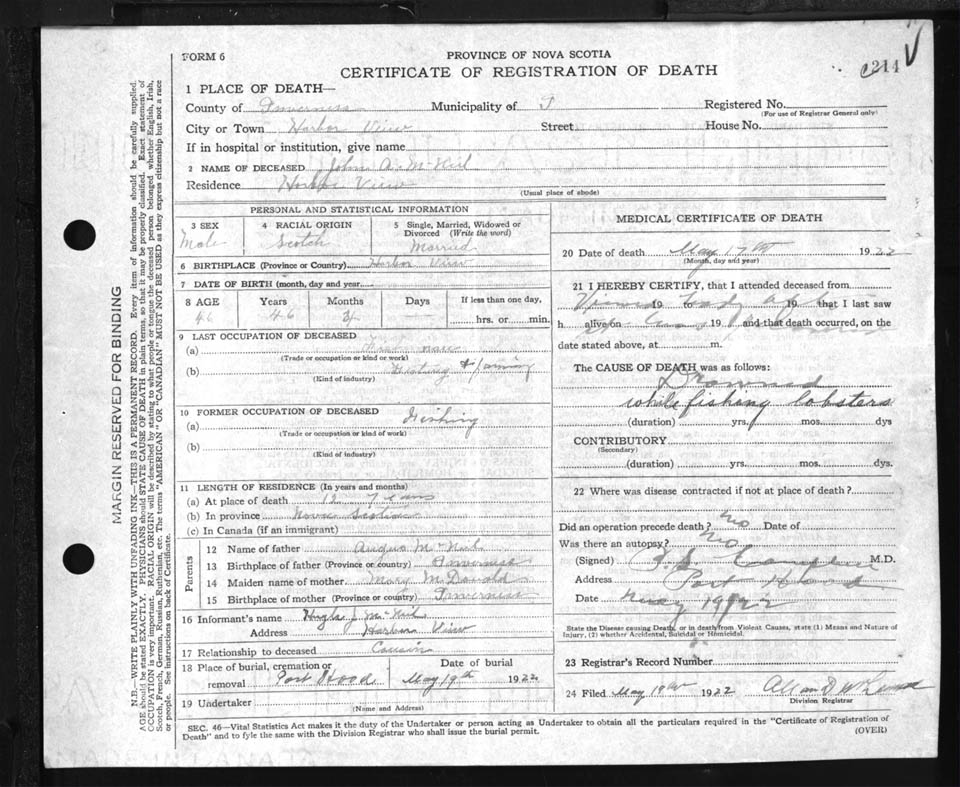 FORM 6
PROVINCE OF NOVA SCOTIA
CERTIFICATE OF REGISTRATION OF DEATH
1214
1 PLACE OF DEATH—
County of Inverness Municipality of I Registered No.
(For use of Registrar General only)
City or Town Harbor View Street House No.
If in hospital or institution, give name
2 NAME OF DECEASED John A. McNeil
Residence Harbor View
(Usual place of abode)
PERSONAL AND STATISTICAL INFORMATION
3 SEX 4 RACIAL ORIGIN 5 Single, Married, Widowed or Divorced (Write the word)
Male Scotch Married
6 BIRTHPLACE (Province or Country) Harbor View
7 DATE OF BIRTH (month, day and year)
8 AGE Years Months Days If less than one day,
46 46 3 hrs. or min.
9 LAST OCCUPATION OF DECEASED
(a)
(Trade or occupation or kind of work)
(b) Fishing & farming
(Kind of industry)
10 FORMER OCCUPATION OF DECEASED
(a) Fishing
(Trade or occupation or kind of work)
(b)
(Kind of industry)
11 LENGTH OF RESIDENCE (In years and months)
(a) At place of death 12 years
(b) In province Nova Scotia
(c) In Canada (if an immigrant)
Parents
12 Name of father Angus McNeil
13 Birthplace of father (Province or country) Inverness
14 Maiden name of mother Mary McDonald
15 Birthplace of mother (Province or country) Inverness
16 Informant's name Hugh J. McNeil
Address Harbor View
17 Relationship to deceased Cousin
18 Place of burial, cremation or removal Port Hood
Date of burial
May 19th 1922
19 Undertaker
(Name and Address)
MEDICAL CERTIFICATE OF DEATH
20 Date of death May 17th 1922
(Month, day and year)
21 I HEREBY CERTIFY, that I attended deceased from
Viewed 19 body 19 that I last saw
h alive on 19 and that death occurred, on the
date stated above, at m.
The CAUSE OF DEATH was as follows:
Drowned
while fishing lobsters
(duration) yrs. mos. dys
CONTRIBUTORY
(Secondary)
(duration) yrs. mos. dys.
22 Where was disease contracted if not at place of death?
Did an operation precede death? No Date of
Was there an autopsy? No
(Signed) M.D.
Address Port Hood
Date May 19 1922
State the Disease causing Death, or in death from Violent Causes, state (1) Means and Nature of
Injury, (2) whether Accidental, Suicidal or Homicidal.
23 Registrar's Record Number
24 Filed May 19th 1922
Division Registrar
SEC. 46—Vital Statistics Act makes it the duty of the Undertaker or person acting as Undertaker to obtain all the particulars required in the "Certificate of Registration of
Death" and to fyle the same with the Division Registrar who shall issue the burial permit.
(OVER)
MARGIN RESERVED FOR BINDING
N.B.—WRITE PLAINLY WITH UNFADING INK—THIS IS A PERMANENT RECORD. Every item of information should be carefully supplied.
AGE should be stated EXACTLY. PHYSICIANS should STATE CAUSE OF DEATH in plain terms, so that it may be properly classified. Exact statement of
OCCUPATION is very important. RACIAL ORIGIN will be described by stating to what people or tongue the deceased person belonged whether English, Irish,
Scotch, French, German, Russian, Ruthenian, etc. The terms "AMERICAN" OR "CANADIAN" MUST NOT BE USED as they express citizenship but not a race
or people. See instructions on back of Certificate.